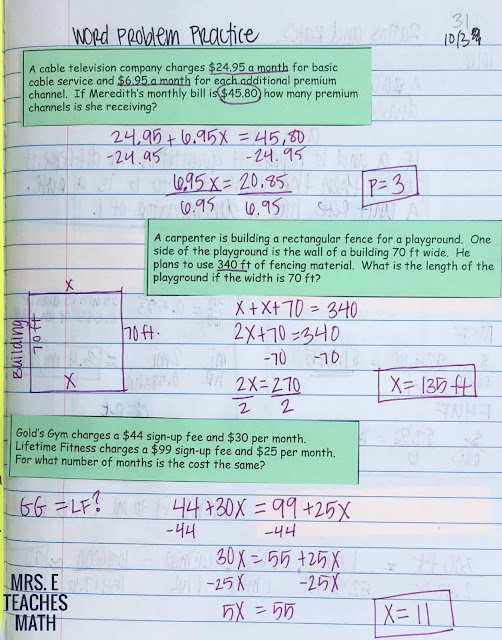 31
Word Problem Practice
A cable television company charges $24.95 a month for basic
cable service and $6.95 a month for each additional premium
channel. If Meredith's monthly bill is $45.80, how many premium
channels is she receiving?
24.95 + 6.95x = 45.80
-24.95 -24.95
6.95x = 20.85
6.95 6.95
P=3
A carpenter is building a rectangular fence for a playground. One
side of the playground is the wall of a building 70 ft wide. He
plans to use 340 ft of fencing material. What is the length of the
playground if the width is 70 ft?
x
Building
70 ft
70 ft.
x
x+x+70 = 340
2x+70=340
-70 -70
2x=270
2 2
x=135 ft
Gold's Gym charges a $44 sign-up fee and $30 per month.
Lifetime Fitness charges a $99 sign-up fee and $25 per month.
For what number of months is the cost the same?
GG = LF?
44+30x = 99+25x
-44 -44
30x = 55+25x
-25x -25x
5x = 55
x=11
MRS. E
TEACHES
MATH